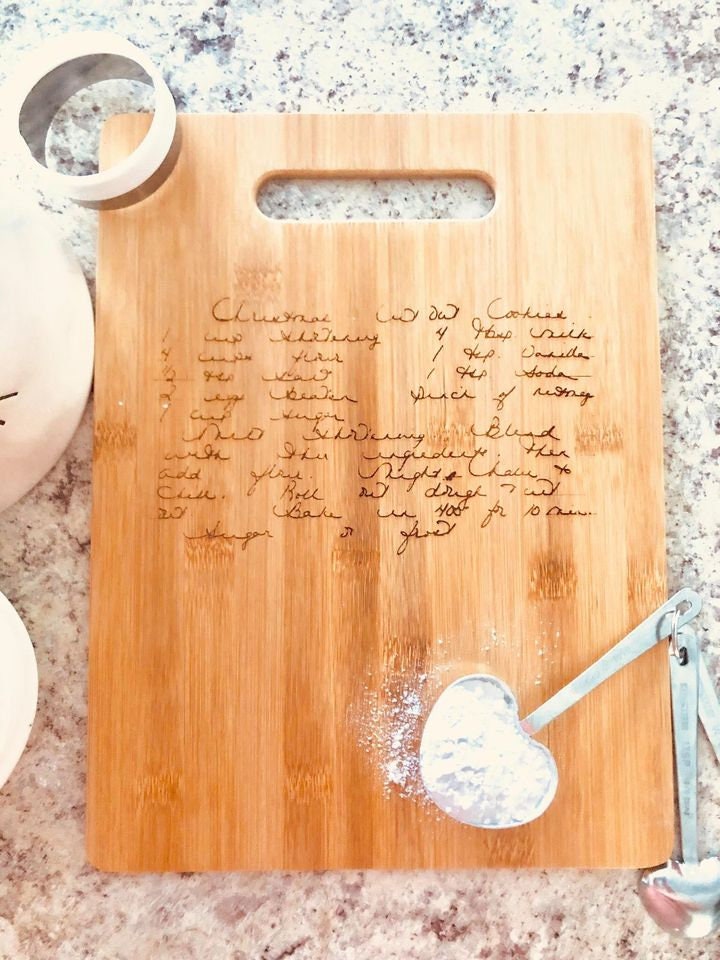 Christmas Cut Out Cookies
1 cup Shortening 4 tbsp. milk
4 cups flour 1 tsp. Vanilla
1/2 tsp Salt 1 tsp Soda
2 egg Beaten pinch of nutmeg
1 cup sugar
Melt Shortening Blend
with other ingredients. Then
add flour. &
Chill. Roll out dough & cut
out Bake in 400 for 10 min.
Sugar or frost